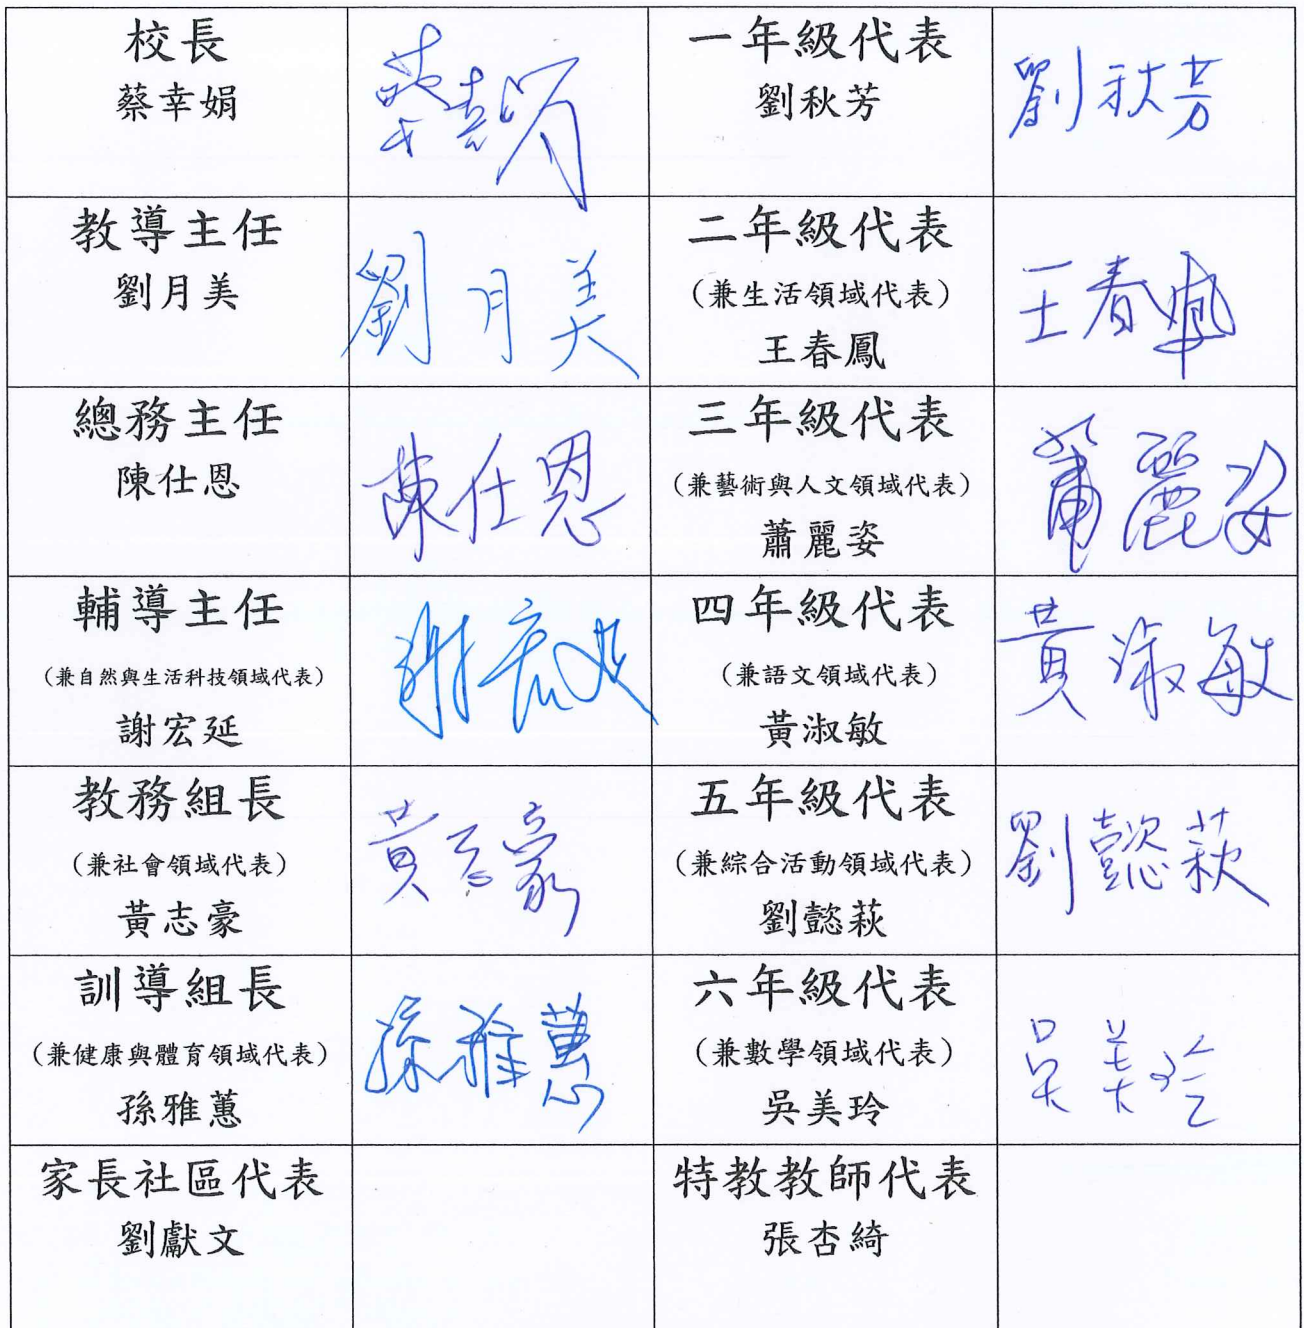 校長
蔡幸娟
蔡幸娟
一年級代表
劉秋芳
劉秋芳
教導主任
劉月美
劉月美
二年級代表
（兼生活領域代表）
王春鳳
王春鳳
總務主任
陳仕恩
陳仕恩
三年級代表
（兼藝術與人文領域代表）
蕭麗姿
蕭麗姿
輔導主任
（兼自然與生活科技領域代表）
謝宏延
謝宏延
四年級代表
（兼語文領域代表）
黃淑敏
黃淑敏
教務組長
（兼社會領域代表）
黃志豪
黃志豪
五年級代表
（兼綜合活動領域代表）
劉懿萩
劉懿萩
訓導組長
（兼健康與體育領域代表）
孫雅蕙
孫雅蕙
六年級代表
（兼數學領域代表）
吳美玲
吳美玲
家長社區代表
劉獻文
特教教師代表
張杏綺